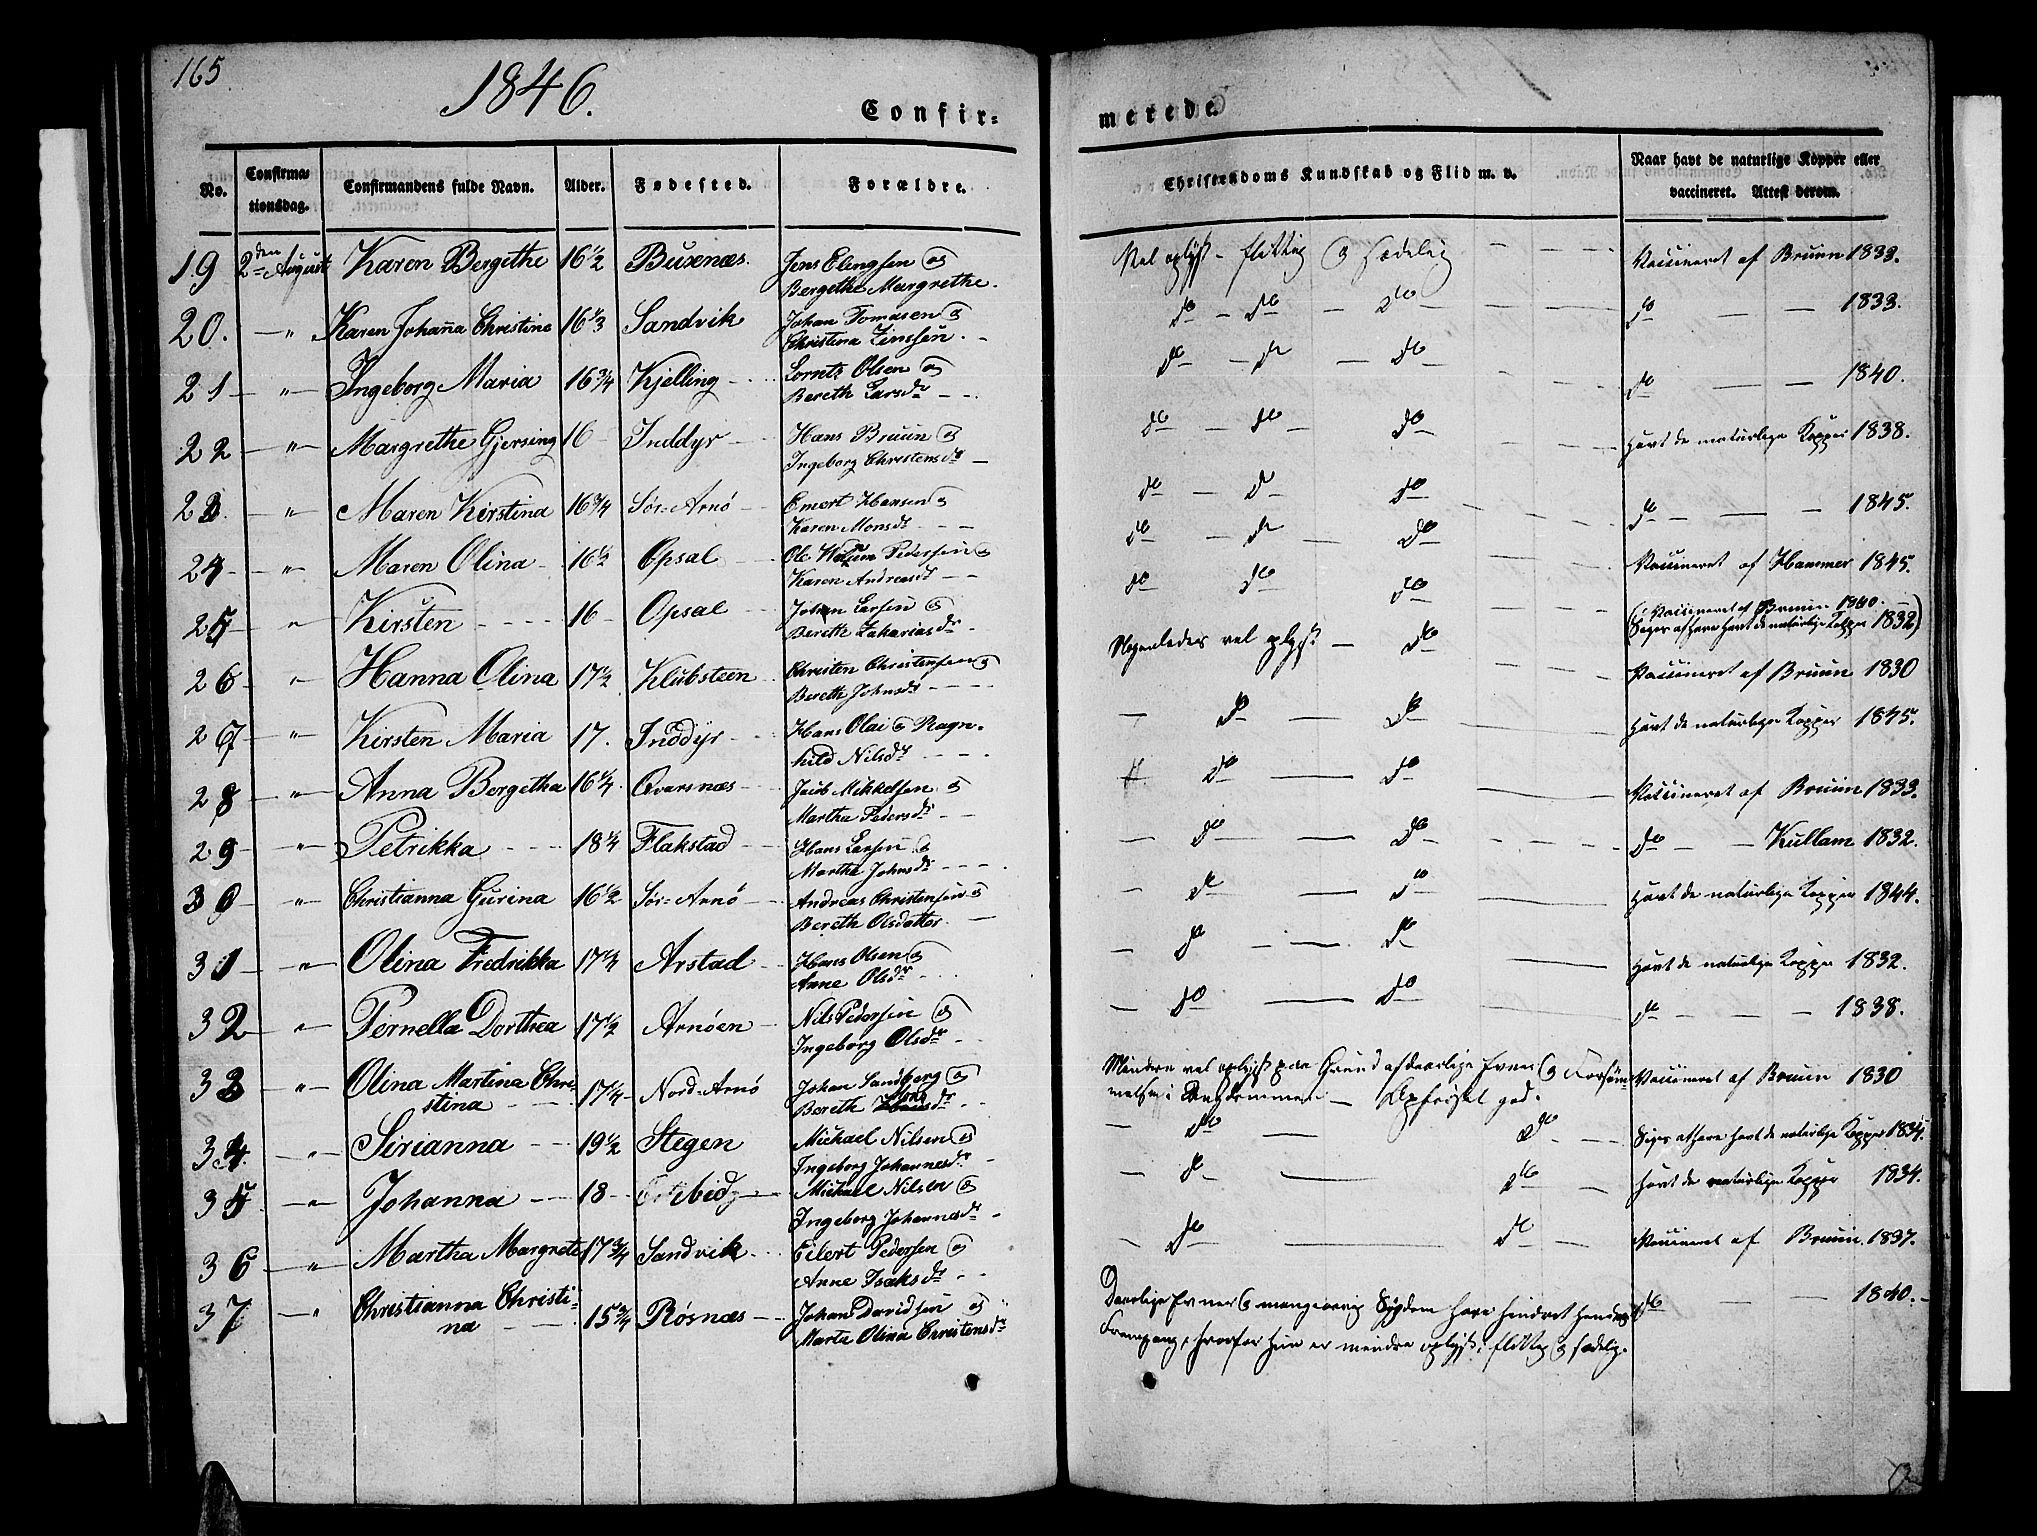 165
1846.
Confir=
merede.
No.
Confirma=
tionsdag.
Confirmandens fulde Navn.
Alder.
Fødested.
Forældre.
Christendoms Kundskab og Flid m. v.
Naar havt de naturlige Kopper eller
vaccineret. Attest derom.
19 2den August Karen Bergithe 16 1/2 Buxnæs. Jens Elingsen og
Bergithe Margrethe.
Vel oplyst - flittig og sædelig - - Vaccineret af Bruun 1833.
20. - " Karen Johanna Christine 16 1/3 Sandvik Johan Tomasen og
Christina Jenssen. -
do - do - do - - do - - 1833.
21 - " - Ingeborg Maria 16 3/4 Kjelling - Lorntz Olsen og
Bereth Larsdr - -
do - do - do - - do - - 1840.
22 - " - Margrethe Gjersing 16 - Inddyr - Hans Bruun og
Ingeborg Christensdr -
do - do do - - havt de naturlige Kopper 1838.
23. - " - Maren Kirstina 16 3/4 Sør-Arnø - Emert Hansen og
Karen Monsdr - -
do - do do - - do - - 1845.
24 - " - Maren Olina - 16 1/2 Opsal - Ole Pedersen og
Karen Andreasdr - -
do - do - do - - Vaccineret af Hammer 1845.
25 - " Kirsten - - - 16 - Opsal - Johan Larsen og
Bereth Zakariasdr -
do do do - - (Vaccineret af Bruun 1840.
Siges at have havt de naturlige Kopper 1832)
26 - " Hanna Olina 17 1/2 Klubsteen - Christen Christensen og
Bereth Johnsdr - - -
Nogenledes vel oplyst - do - - Vaccineret af Bruun 1830
27 - " - Kirsten Maria 17. Inddyr - Hans Olai og Ragn-
hild Nilsdr - - -
- do - do - - havt de naturlige Kopper 1845.
28 - " - Anna Bergetha 16 1/4 Qvarsnæs - Jacob Mikkelsen og
Martha Pedersdr - -
do - do - - Vaccineret af Bruun 1833.
29 - " - Petrikka - - 18 1/4 Flakstad Hans Larsen og
Martha Johnsdr - - -
- do - do - - do - Kullam 1832.
30 - " - Christianna Gurina 16 1/2 Sør-Arnø - Andreas Christensen og
Bereth Olsdatter. -
- do - do - - havt de naturlige Kopper 1844.
31 - " - Olina Fredrikka 17 1/3 Arstad - Hans Olsen og
Anne Olsdr - - -
- do - - do - - havt de naturlige Kopper 1832.
32 - " Pernella Dorthea 17 1/2 Arnøen - Nils Pedersen og
Ingeborg Olsdr - -
- do - do - - do - - 1838.
33 - " - Olina Martina Chri-
stina - - 17 1/4 - Nord-Arnø Johan Sandberg og
Bereth dr - -
Mindre vel oplyst paa Grund af daarlige Evner og Forsøm-
melse i Ungdommen - Opførsel god. Vaccineret af Bruun 1830
34. - " - Sirianna - - 19 1/2 Stegen Michael Nilsen og
Ingeborg Johannesdr -
- do - do - - Siges at have havt de naturlige Kopper 1834.
35 - " - Johanna - - 18 - Michael Nilsen og
Ingeborg Johannesdr -
- do - do - havt de naturlige Kopper 1834.
36 - " - Martha Margrete 17 3/4 Sandvik - Eilert Pedersen og
Anne Isaksdr - -
- do - do - Vaccineret af Bruun. 1837.
37 - " Christianna Christi-
na - - 15 3/4 Røsnæs - - Johan Davidsen og
Marte Olina Christensdr
Daarlige Evner og mangeaarig Sygdom have hindret hendes do - - 1840. -
Fremgang, hvorfor hun er mindre oplyst; flittig og sædelig.